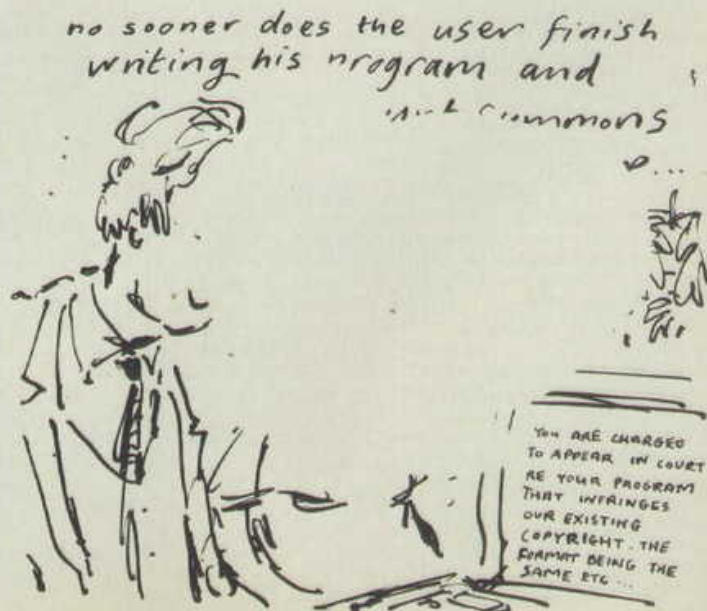 no sooner does the user finish
writing his program and
summons
YOU ARE CHARGED
TO APPEAR IN COURT
RE YOUR PROGRAM
THAT INFRINGES
OUR EXISTING
COPYRIGHT. THE
FORMAT BEING THE
SAME ETC ...